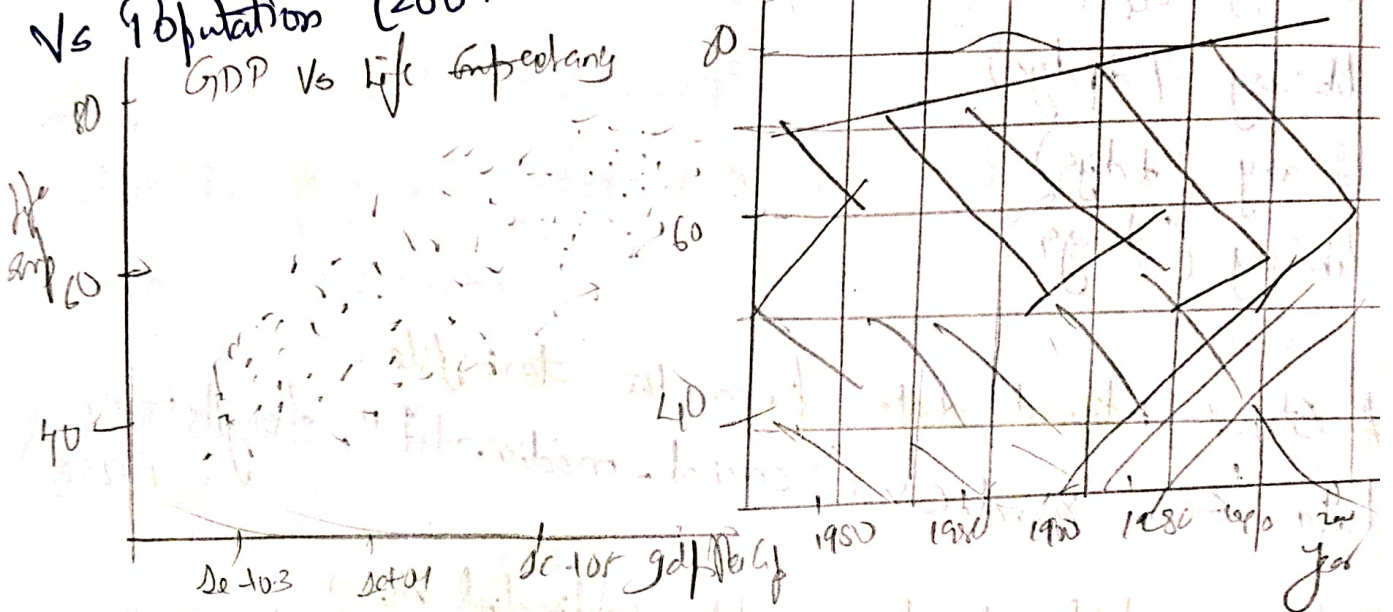 Vs Population (200
GDP Vs Life Expectany
80
Life
exp
60
40
1e+03
1e+04
1e+05 gdpPerCap
80
60
40
1950
1980
1990
Year